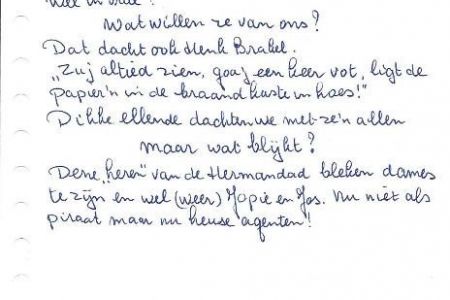 Wat willen ze van ons?
Dat dacht ook Henk Brakel.
„Zu j altied zien, goa j een keer vot, ligt de
papier'n in de braandkaste in hoes!"
Dikke ellende dachten we met ze'n allen
maar wat blijkt?
Deze „heren" van de Hermandad bleken dames
te zijn en wel (weer) Jopie en Jos. Nu niet als
piraat maar nu heuse agenten!